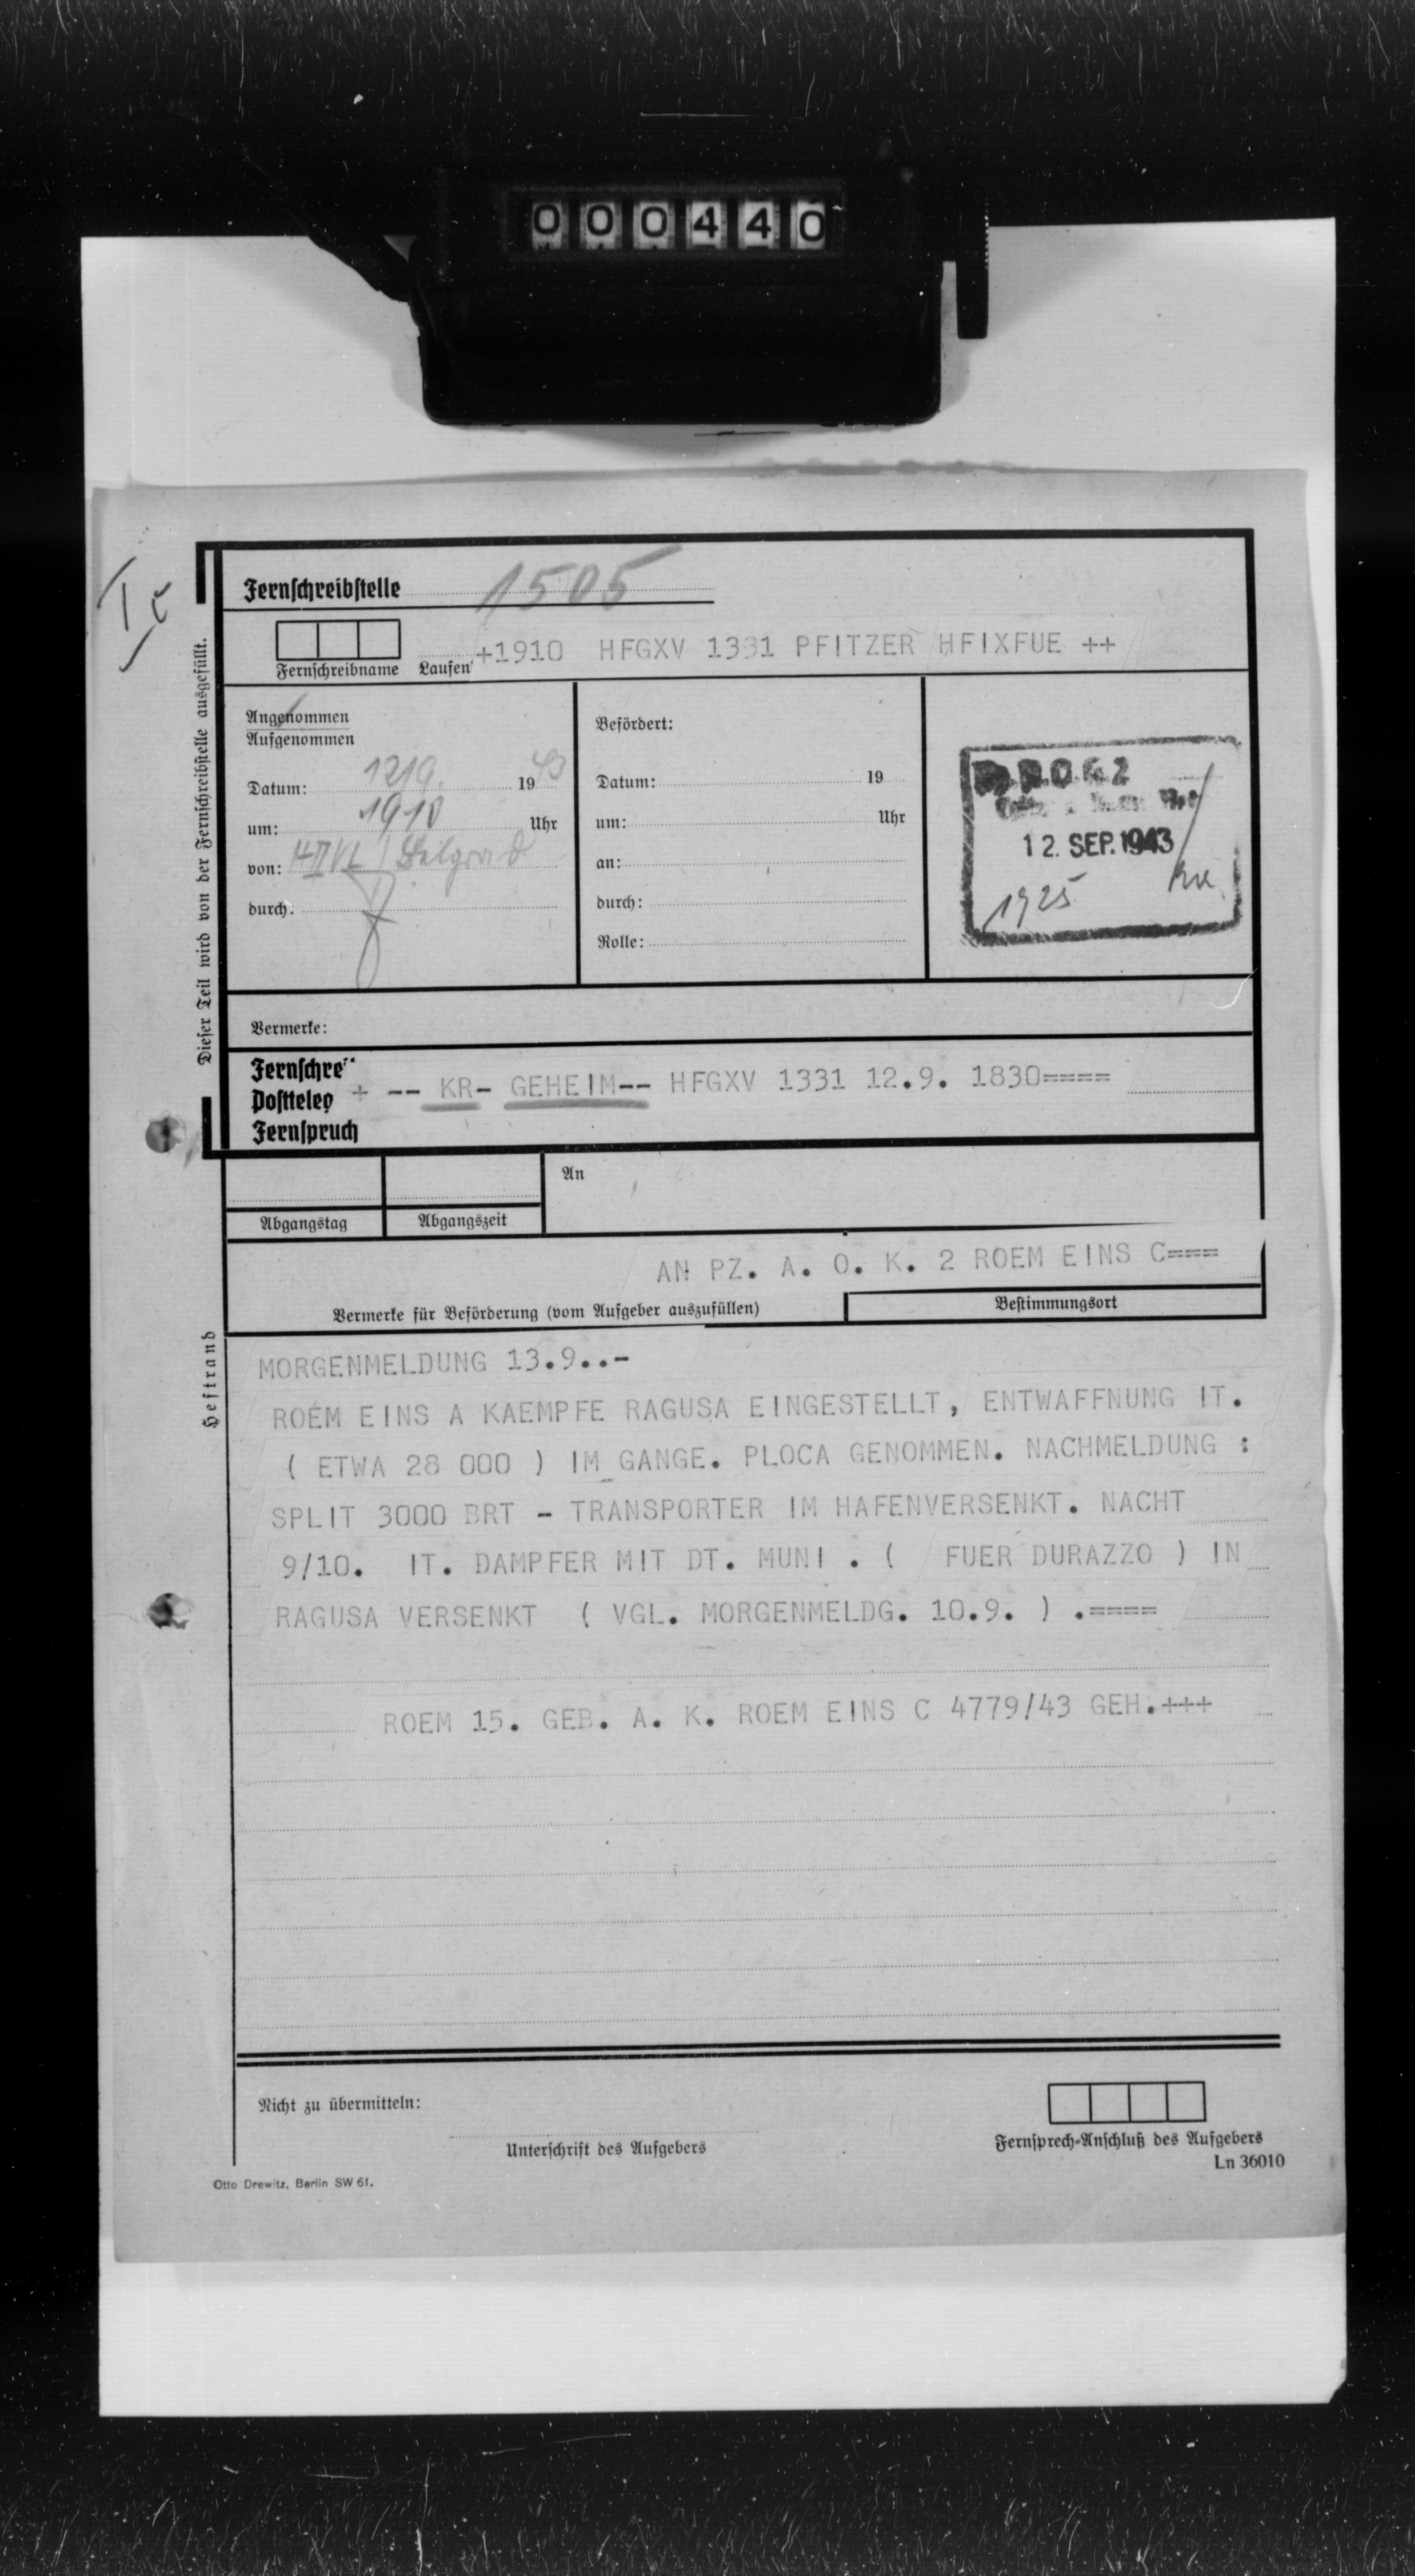 000440
Ic
Fernschreibstelle 1505
+1910 HFGXV 1331 PFITZER HFIXFUE ++
Fernschreibname Laufen
Dieser Teil wird von der Fernschreibstelle ausgefüllt.
Angenommen
Aufgenommen
Datum: 1219. 1943
um: 1910 Uhr
von: Belgrad
durch:
Befördert:
Datum: 19
um: Uhr
an:
durch:
Rolle:
12. SEP. 1943
1925
Vermerke:
Fernschre
Posttelep + -- KR- GEHEIM-- HFGXV 1331 12.9. 1830====
Fernspruch
An
Abgangstag Abgangszeit
AN PZ. A. O. K. 2 ROEM EINS C===
Vermerke für Beförderung (vom Aufgeber auszufüllen) Bestimmungsort
Heftrand
MORGENMELDUNG 13.9..-
ROEM EINS A KAEMPFE RAGUSA EINGESTELLT, ENTWAFFNUNG IT.
( ETWA 28 000 ) IM GANGE. PLOCA GENOMMEN. NACHMELDUNG :
SPLIT 3000 BRT - TRANSPORTER IM HAFENVERSENKT. NACHT
9/10. IT. DAMPFER MIT DT. MUNI . ( FUER DURAZZO ) IN
RAGUSA VERSENKT ( VGL. MORGENMELDG. 10.9. ) .====
ROEM 15. GEB. A. K. ROEM EINS C 4779/43 GEH.+++
Nicht zu übermitteln:
Unterschrift des Aufgebers
Fernsprech-Anschluß des Aufgebers
Ln 36010
Otto Drewitz, Berlin SW 61.